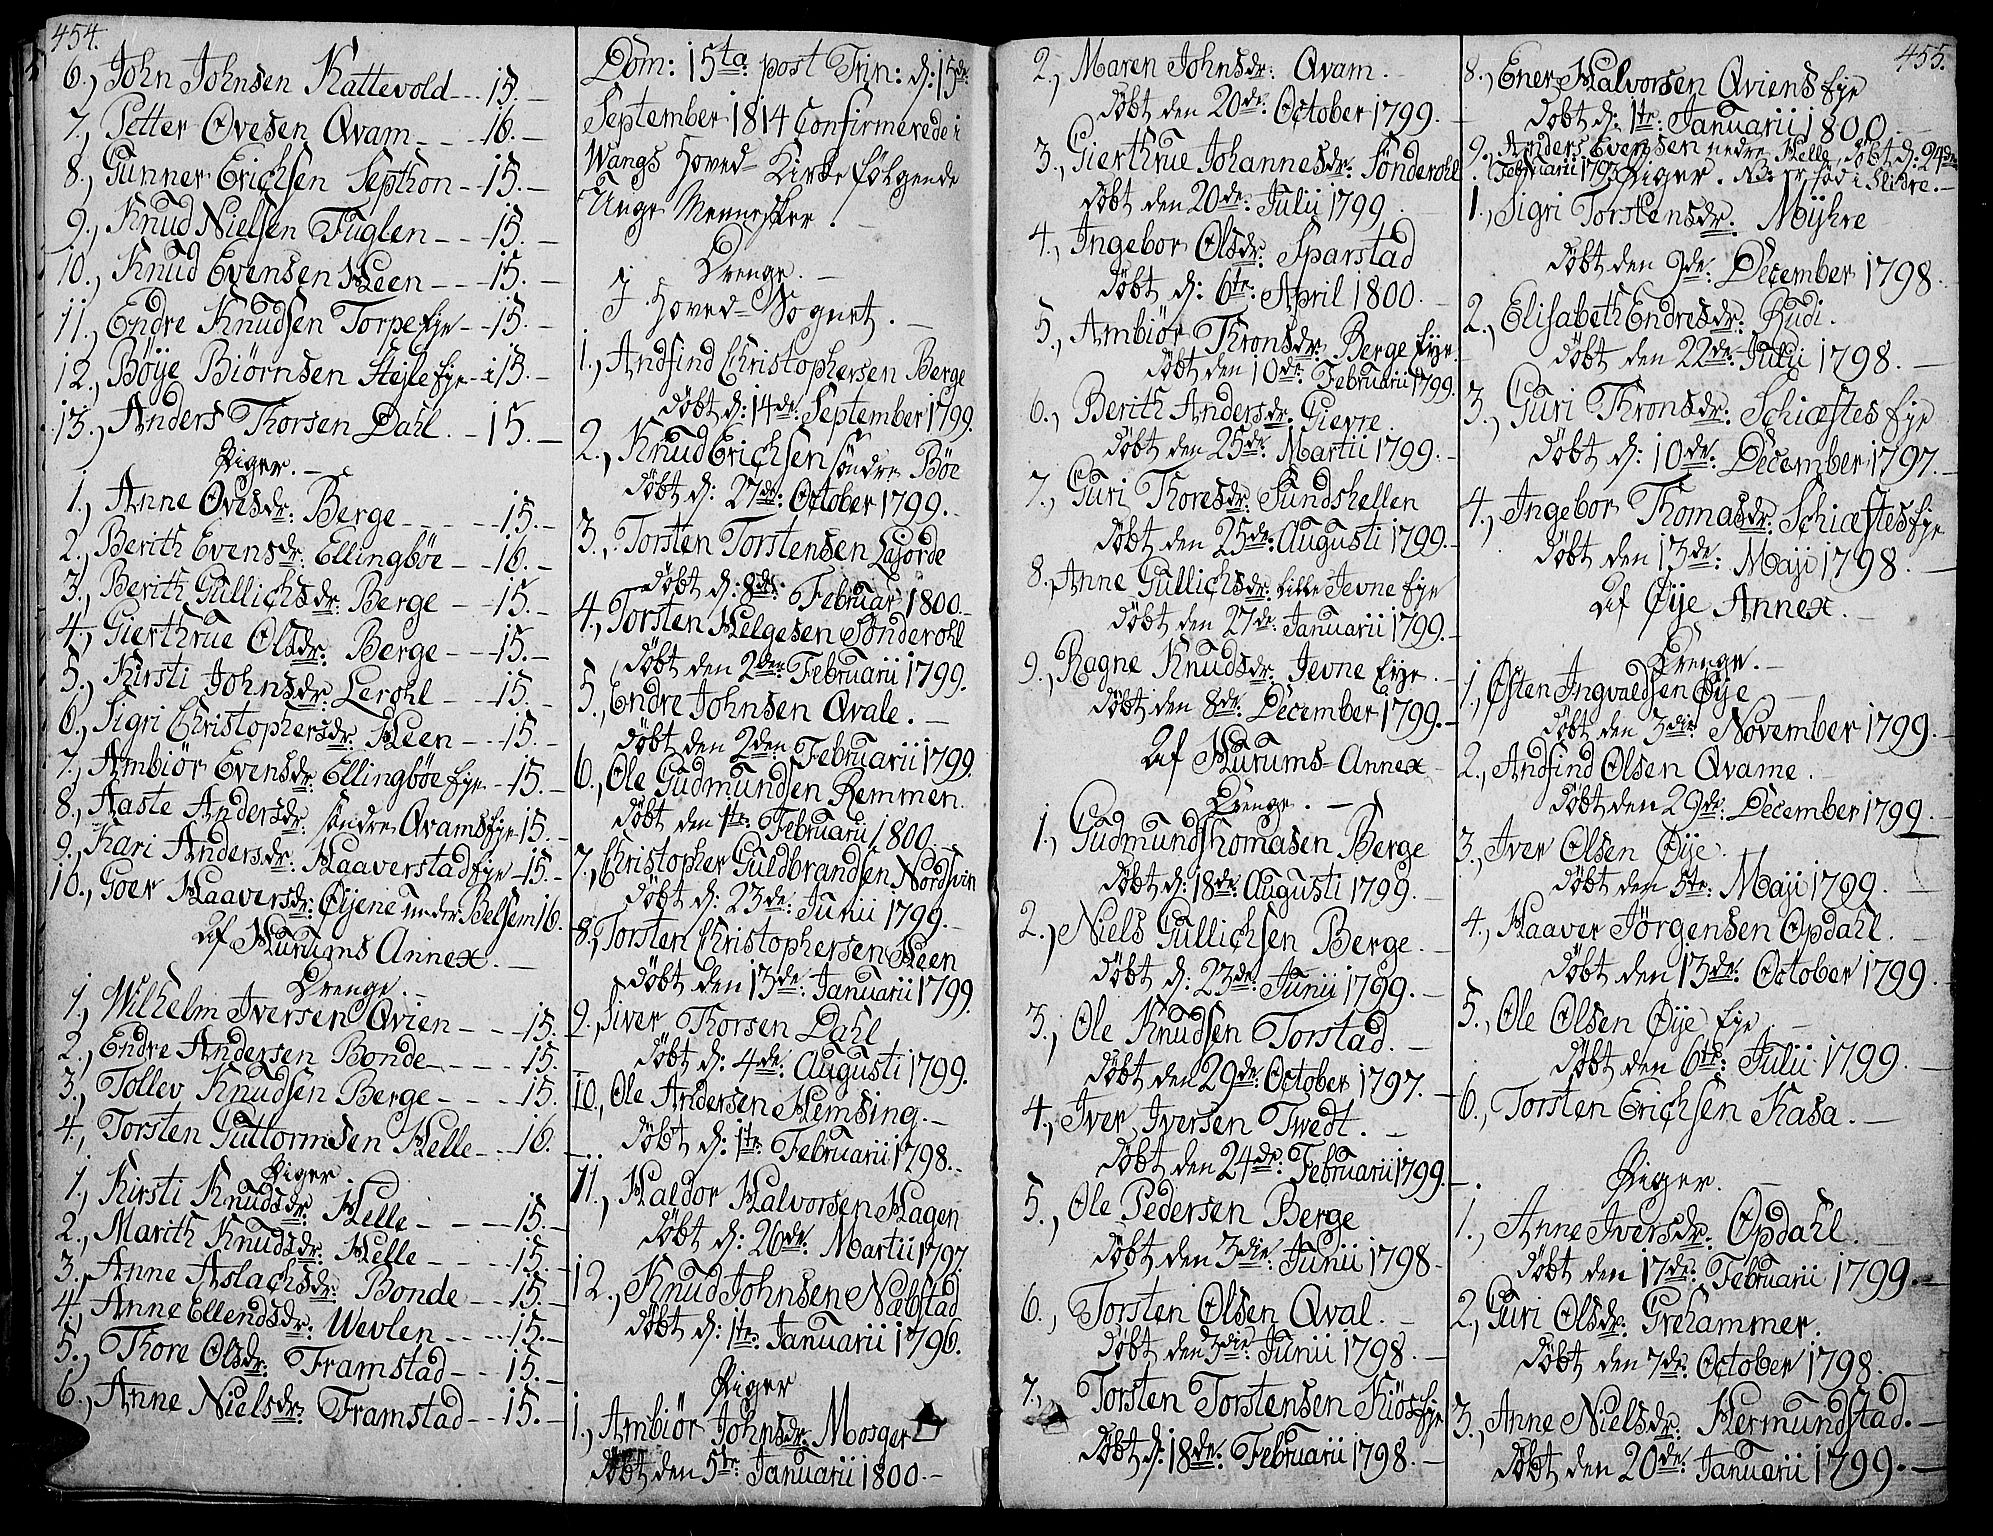 454.
6., John Johnsen Kattevold - - - 15. -
7., Petter Ovesen Qvam - - - 16. -
8., Gunner Erichsen Septhon - - 15. -
9., Knud Nielsen Fuglen - - - 15. -
10., Knud Evensen Heen - - - 15. -
11., Endre Knudsen Torpe Eje - - 15. -
12., Böye Biörnsen Hejle Eje - - 15. -
13., Anders Thorsen Dahl. - - 15. -
Piger. -
1., Anne Ovesdr: Berge - - - - 15. -
2., Berith Evensdr: Ellingböe - - 16. -
3., Berith Gullichsdr: Berge - - 15. -
4., Gierthrue Olsdr: Berge - - 15. -
5., Kirsti Johnsdr: Lerohl - - 15. -
6., Sigri Christophersdr: Heen - - 15. -
7., Ambiör Evensdr: Ellingböe Eje - 15. -
8., Aaste Andersdr: söndre Qvams Eje 15. -
9., Kari Andersdr: Haaverstad Eje - 15. -
10., Goer Haaversdr: Öÿene under Belsem 16.
Af Hurums Annex. -
Drenge. -
1., Wilhelm Iversen Qvien - - - 15.
2., Endre Andersen Bonde - - - - 15.
3., Tollev Knudsen Berge - - - 15.
4., Torsten Guttormsen Helle - - 16.
Piger
1., Kirsti Knudsdr: Helle - - - - 15. -
2., Marith Knudsdr: Helle - - - - 15. -
3., Anne Aslachsdr: Bonde - - 15. -
4., Anne Ellendsdr: Wevlen - - - 15. -
5., Thore Olsdr: Framstad - - - 15. -
6., Anne Nielsdr: Framstad - - 15. -
Dom: 15ta post Trin: d: 15de
September 1814 Confirmerede i
Wangs Hoved-Kirke følgende
Unge Mennesker. -
Drenge. -
I Hoved-Sognet. -
1., Andfind Christophersen Berge
döbt d: 14de: September 1799.
2., Knud Erichsen söndre Böe
döbt d: 27de: October 1799. -
3., Torsten Torstensen Lajorde
döbt d: 8de: Februar: 1800. -
4., Torsten Helgesen Sönderohl
döbt den 2den Februarii 1799.
5., Endre Johnsen Qvale. -
döbt den 2den Februarii 1799.
6., Ole Gudmundsen Remmen.
döbt den 1te: Februarii 1800. -
7., Christopher Guldbrandsen Nordsvin
döbt d: 23de: Junii 1799. -
8., Torsten Christophersen Heen
döbt den 13de: Januarii 1799.
9., Siver Thorsen Dahl
döbt d: 4de: Augusti 1799.
10., Ole Andersen Hemsing. -
döbt d: 1te: Februarii 1798. -
11., Haldor Halvorsen Hagen
döbt d: 26de: Martii 1797.
12., Knud Johnsen Næbstad
döbt d: 1te: Januarii 1796.
Piger
1., Ambiör Johnsdr: Mosger
döbt den 5te: Januarii 1800. -
2., Maren Johnsdr: Qvam. -
döbt den 20de: October 1799. -
3., Gierthrue Johannesdr: Sönderohl
döbt den 20de: Julii 1799.
4., Ingebor Olsdr: Sparstad
döbt d: 6te: April 1800. -
5., Ambiör Thronsdr: Berge Eje.
döbt den 10de: Februarii 1799.
6., Berith Andersdr: Gievre.
döbt den 25de: Martii 1799. -
7., Guri Thoresdr: Sundshellen
döbt den 25de: Augusti 1799. -
8., Anne Gullichsdr: Lille Jevne Eje
döbt den 27de: Januarii 1799. -
9., Ragne Knudsdr: Jevne Eje. -
döbt den 8de: December 1799. -
Af Hurums-Annex
Drenge. -
1., Gudmund Thomasen Berge
döbt d: 18de: Augusti 1799. -
2., Niels Gullichsen Berge. -
döbt d: 23de: Junii 1799. -
3., Ole Knudsen Torstad. -
döbt den 29de: October 1797. -
4., Iver Iversen Twedt. -
döbt den 24de: Februarii 1799.
5., Ole Pedersen Berge
döbt den 3die: Junii 1798 -
6., Torsten Olsen Qval. -
döbt den 3die: Junii 1798. -
7., Torsten Torstensen Kiös Eje
döbt d: 18de: Februarii 1798. -
455.
8., Ener Halvorsen Qviens Eje
döbt d: 1te: Januarii 1800. -
9., Anders Evensen nedre Helle, döbt d: 24de
Februarii 1793. NB: er fød i Slidre. -
Piger.
1., Sigri Torstensdr: Mÿhre
döbt den 9de: December 1798.
2., Elisabeth Endresdr: Rudi.
döbt den 22de: Julii 1798. -
3., Guri Thronsdr: Schiæftes Eje
döbt d: 10de: December 1797. -
4., Ingebor Thomasdr: Schiæftes Eje
döbt den 13de: Maji 1798. -
Af Öÿe Annex. -
Drenge. -
1., Östen Ingvaldsen Öÿe
döbt den 3die November 1799. -
2., Andfind Olsen Qvame. -
döbt den 29de: December 1799
3., Iver Olsen Öÿe.
döbt den 5te: Maji 1799. -
4., Haaver Jörgensen Opdahl. -
döbt den 13de: October 1799.
5., Ole Olsen Öÿe Eje
döbt den 6te: Julii 1799. -
6., Torsten Erichsen Kasa. -
Piger. -
1., Anne Iversdr: Opdahl. -
döbt den 17de: Februarii 1799. -
2., Guri Olsdr: Grehammer.
döbt den 7de: October 1798. -
3., Anne Nielsdr: Hermundstad. -
döbt den 20de: Januarii 1799. -